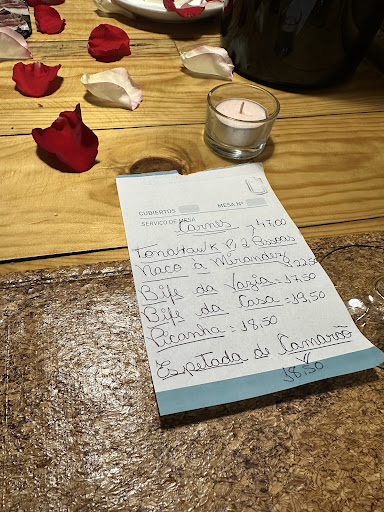 CUBIERTOS MESA Nº
SERVIÇO DE MESA
Carnes 47,00
Tomahawk P/ 2 Pessoas
Naco à Mirandez 22,50
Bife da Vazia = 17,50
Bife da Casa = 19,50
Picanha = 18,50
Espetada de Camarão
18,50